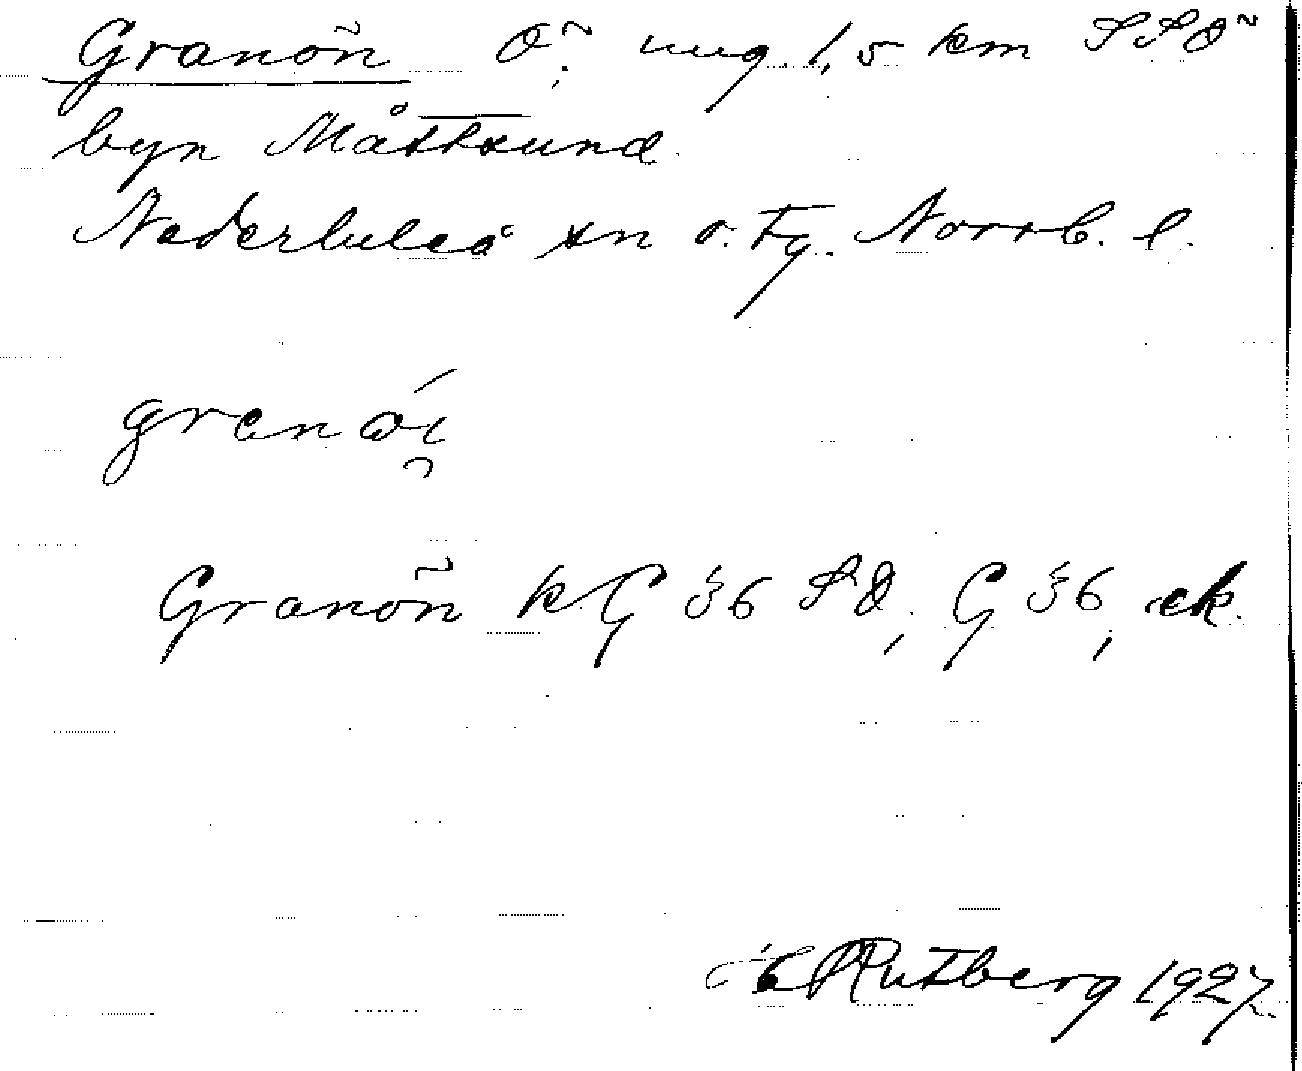 Granön Ö. ung. 1,5 km SSÖ
byn Måttsund.
Nederluleå sn o. tg. Norrb. l.
Granön k G 36 SÖ, G 36, ek.
Rutberg 1927.